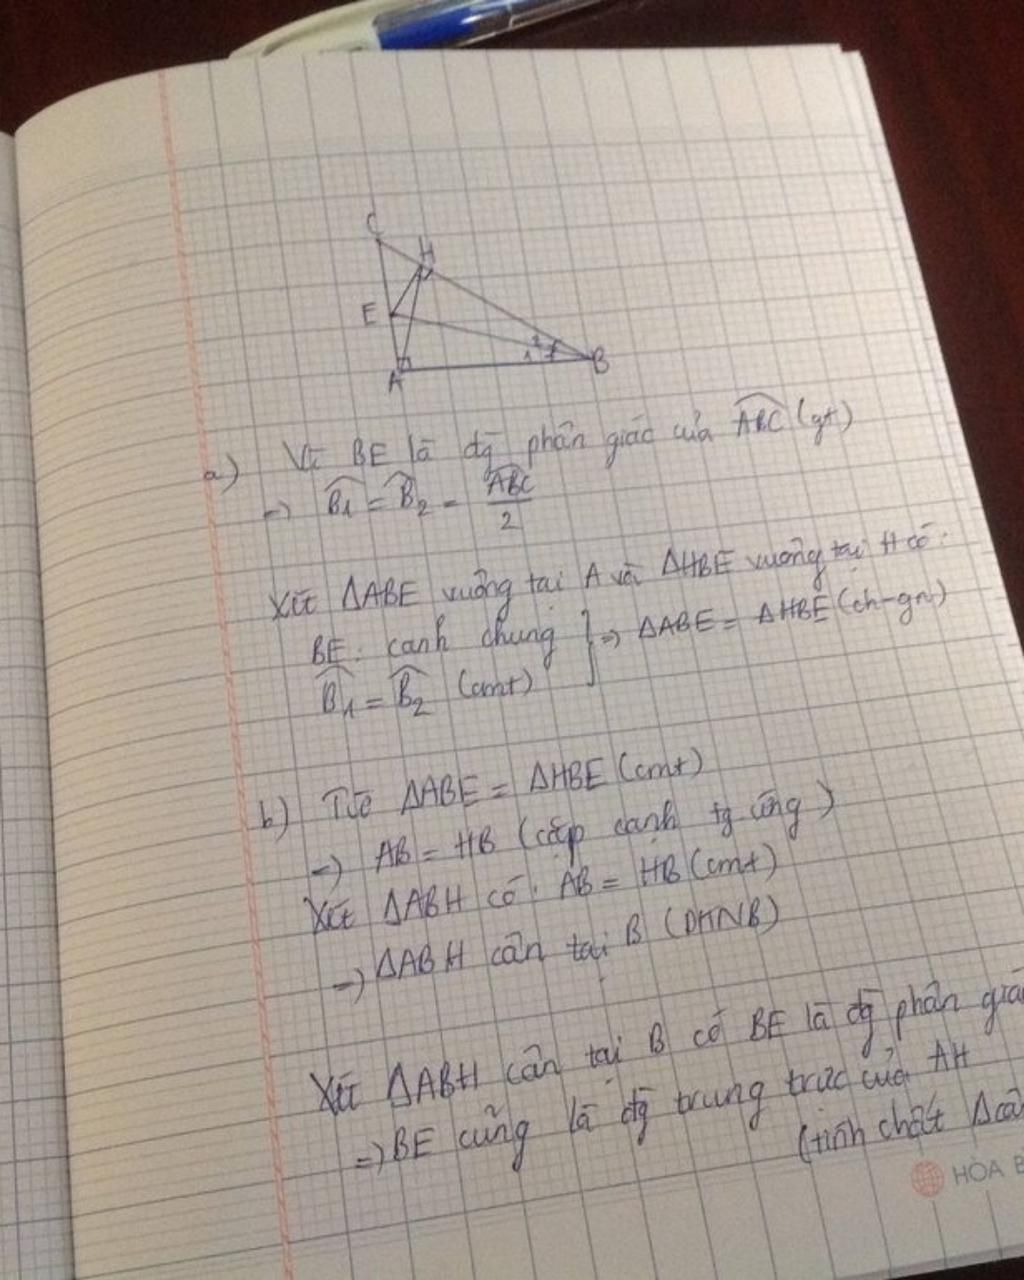 C
H
E
1 2
A
B
a) Vì BE là đg phân giác của ABC (gt)
=> B1 = B2 = ABC/2
Xét ΔABE vuông tại A và ΔHBE vuông tại H có:
BE: cạnh chung } => ΔABE = ΔHBE (ch-gn)
B1 = B2 (cmt)
b) Từ ΔABE = ΔHBE (cmt)
=> AB = HB (cặp cạnh tg ứng)
Xét ΔABH có: AB = HB (cmt)
=> ΔABH cân tại B (DHNB)
Xét ΔABH cân tại B có BE là đg phân giác
=> BE cũng là đg trung trực của AH
(tính chất Δcâ
HÒA B